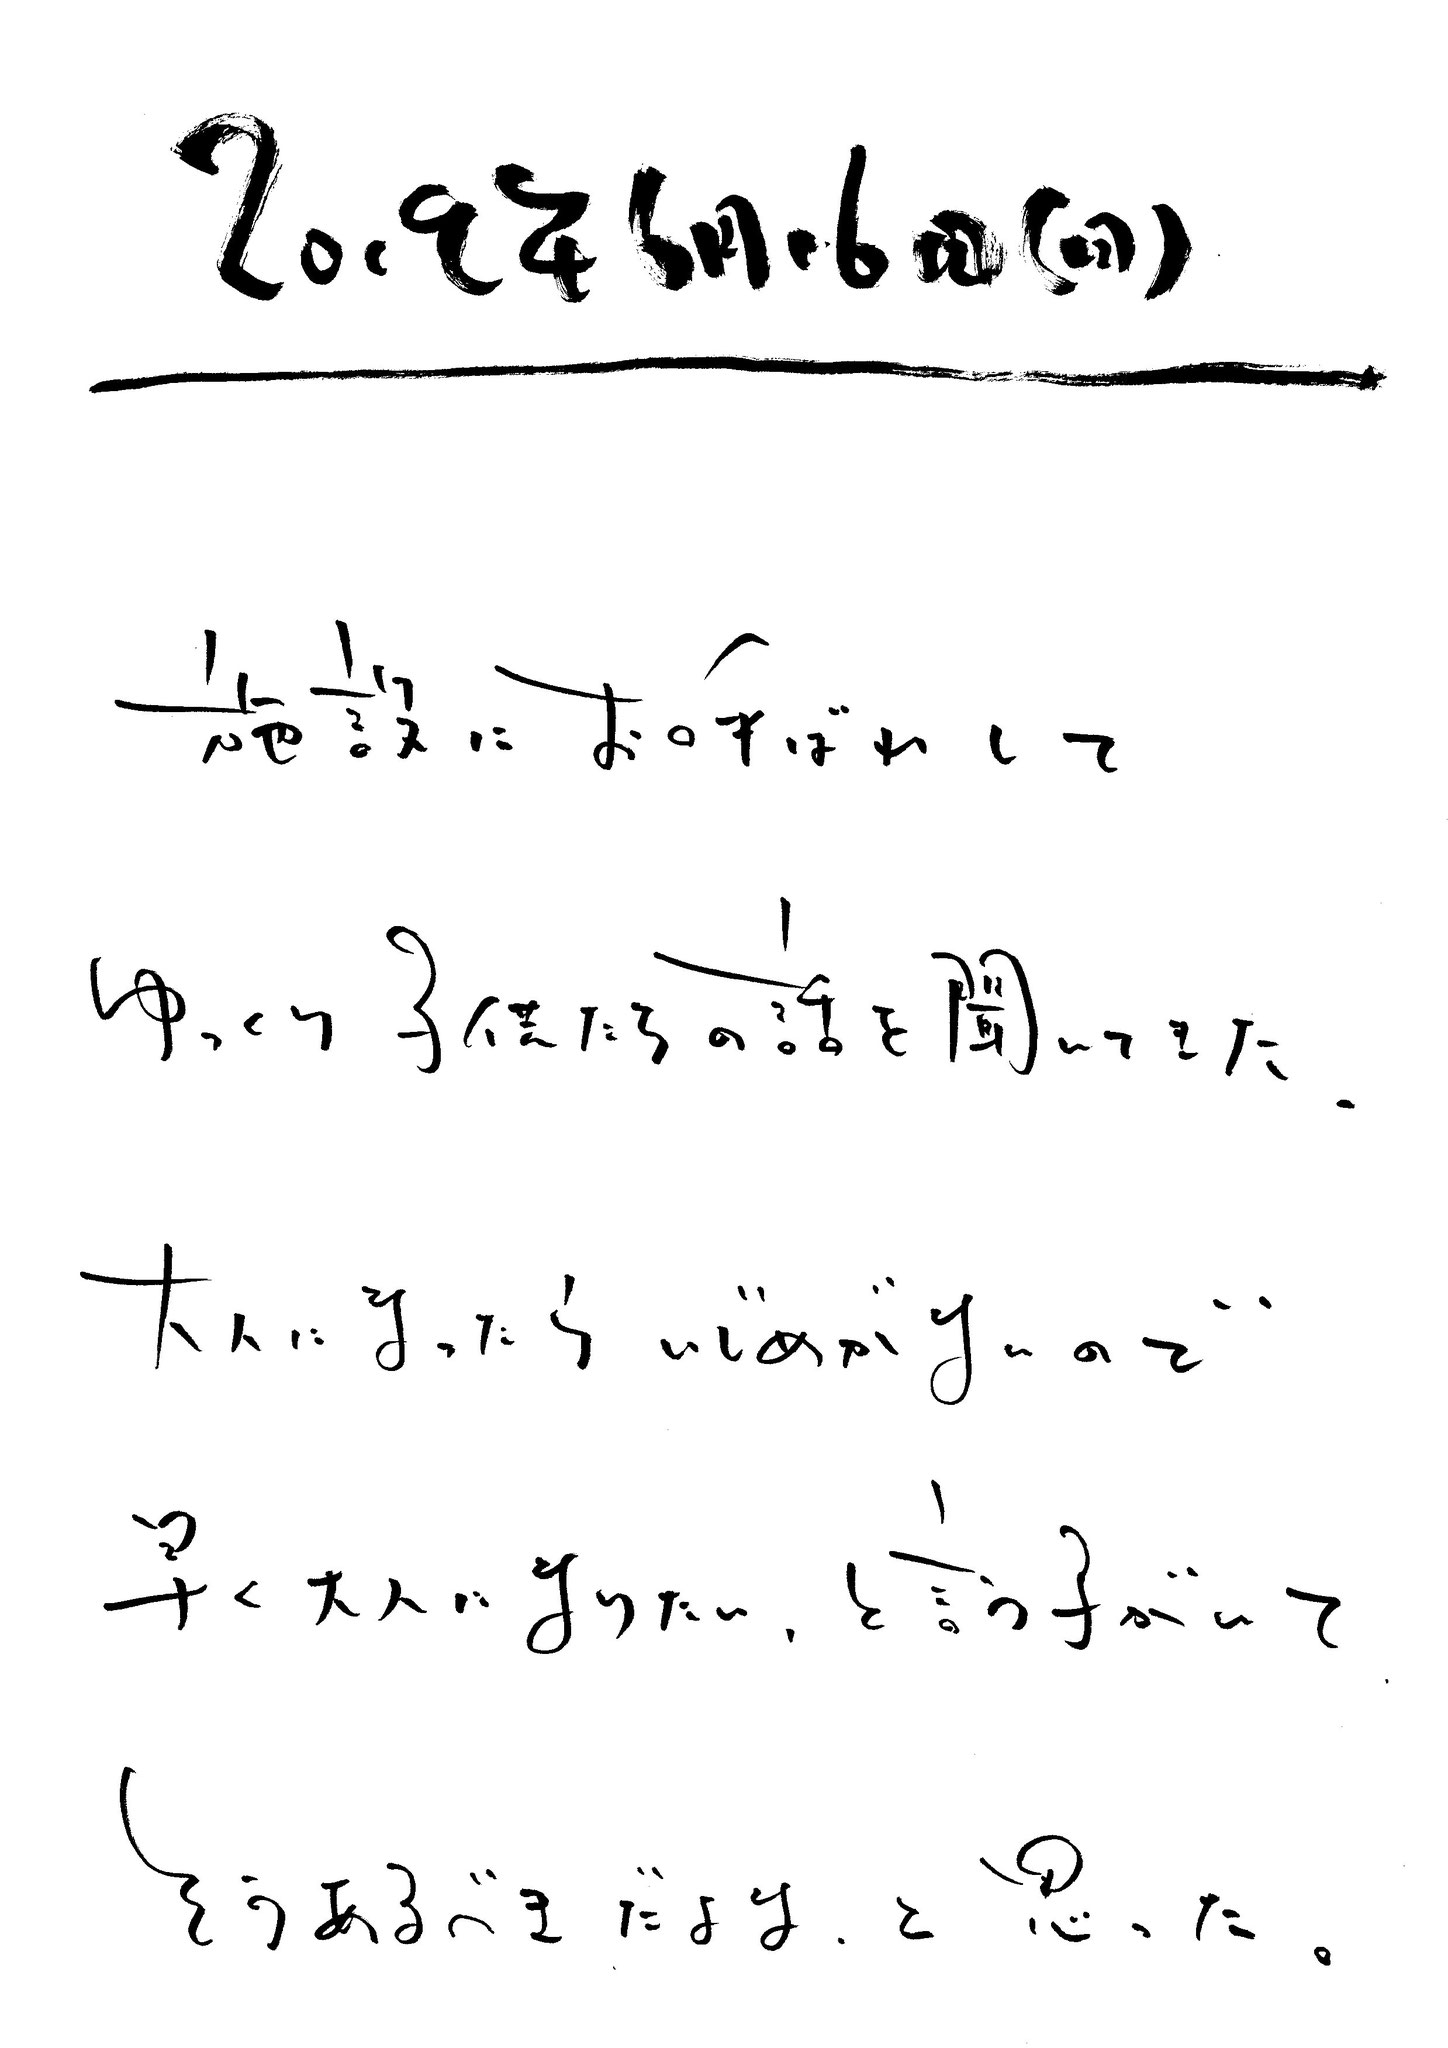 2019年6月16日(日)
施設にお呼ばれして
ゆっくり子供たちの話を聞いてきた.
大人になったら いじめがないので
早く大人になりたい、と言う子がいて
そうあるべきだよな、と思った。